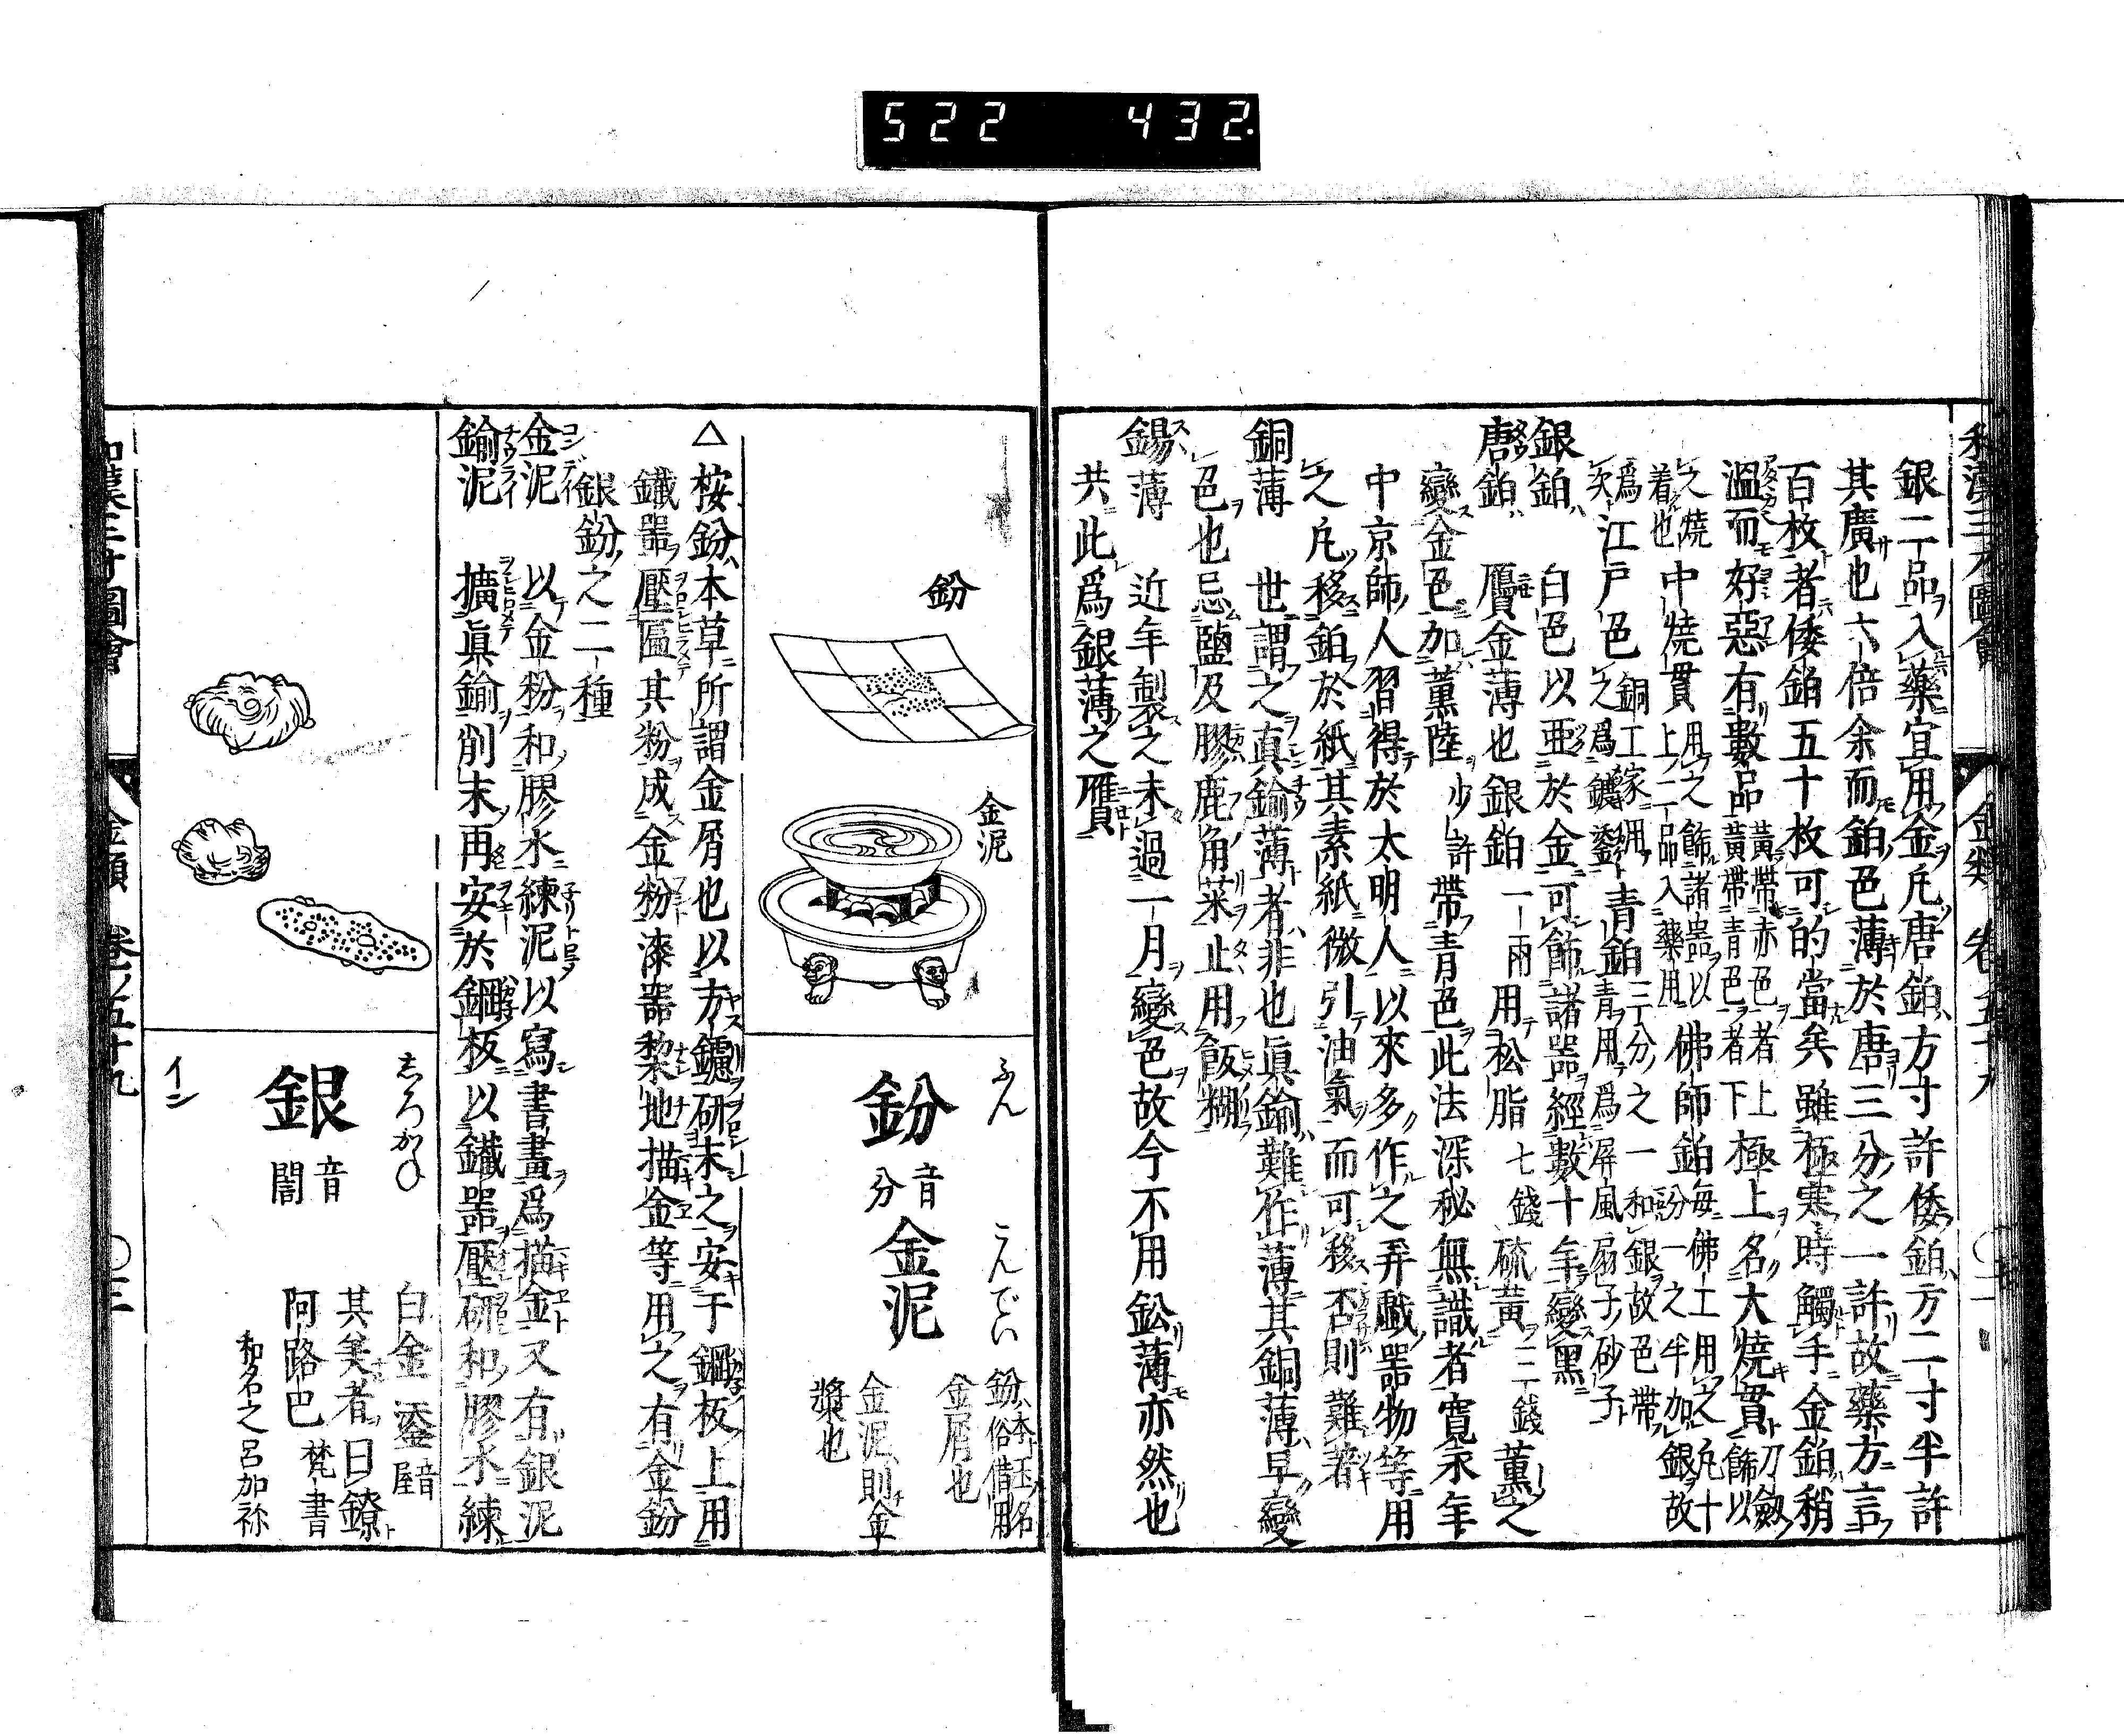 522 432.
和漢三才圖會 金類 卷五十九
銀二品入藥宜用金凡唐鉑方寸許倭鉑方二寸半許
其廣也六倍余而鉑色薄於唐三分之一許故藥方言
百枚者倭鉑五十枚可的當矣雖極寒時觸手金鉑稍
溫而好惡有數品黃帶赤色者上黃帶青色者下極上名大燒貫飾刀劔以
之燒着也中燒貫用之飾諸噐以上二品入藥用佛師鉑每佛工用之凡十
爲次江戸色銅工家用之爲鍍鎏青鉑三分之一和銀故色帶青用爲屏風扇子砂子
銀鉑 白色以亞於金可飾諸噐經數十年變黑
唐鉑 贋金薄也銀鉑一兩用松脂七錢硫黃三錢薰之
變金色加薰陸少許帶青色此法深秘無識者寛永年
中京師人習得於太明人以來多作之弄戲噐物等用
之凡移鉑於紙其素紙微引油氣而可移否則難著
銅薄 世謂之真鍮薄者非也眞鍮難作薄其銅薄早變
色也忌鹽及膠鹿角菜止用飯糊
錫薄 近年製之未過一月變色故今不用鈆薄亦然也
共此爲銀薄之贋
鈖
金泥
ふん
鈖 音分
こんでい
金泥
鈖本玉名俗借用
金屑也
金泥則金
漿也
△按鈖本草所謂金屑也以方鑢研末之安于鋼板上用
鐵噐壓匾其粉成金粉漆器棃地描金等用之有金鈖
銀鈖之二種
金泥 以金粉和膠水練泥以寫書畫爲描金又有銀泥
鍮泥 擴眞鍮削末再安於鋼板以鐵噐壓研和膠水練
しろかね
銀 音誾
イン
白金 鋈音屋
其美者曰鐐
阿路巴 梵書
和名之呂加祢
和漢三才圖會 金類 卷ノ五十九 〇三